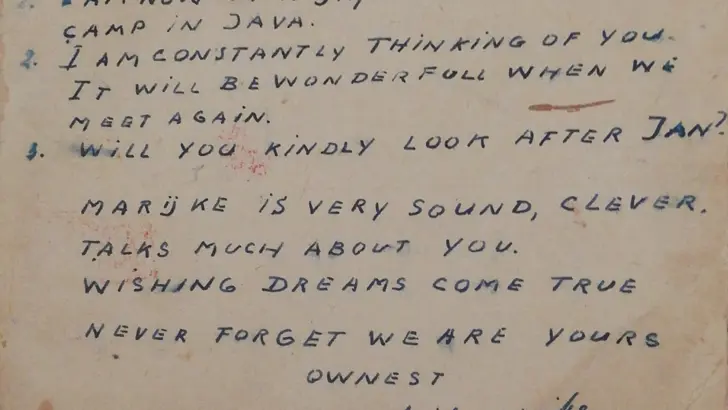 CAMP IN JAVA.
2. I AM CONSTANTLY THINKING OF YOU.
IT WILL BE WONDERFULL WHEN WE
MEET AGAIN.
3. WILL YOU KINDLY LOOK AFTER JAN?
MARIJKE IS VERY SOUND, CLEVER.
TALKS MUCH ABOUT YOU.
WISHING DREAMS COME TRUE
NEVER FORGET WE ARE YOURS
OWNEST